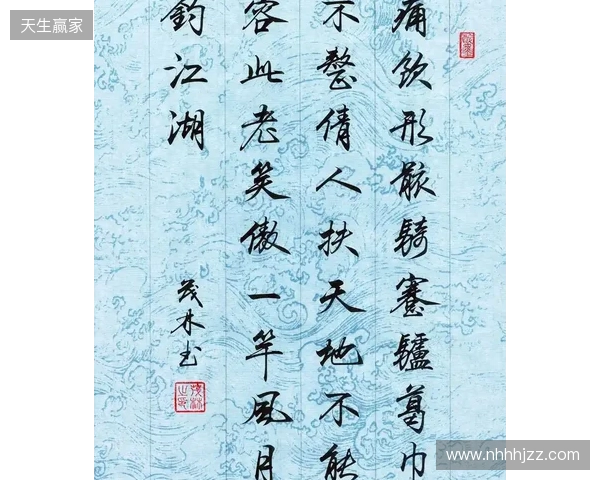 天生赢家
痛飲形骸騎蹇驢葛巾
不整倩人扶天地不能
容此老笑傲一竿風月
釣江湖
茂林书
www.nhhhjzz.com